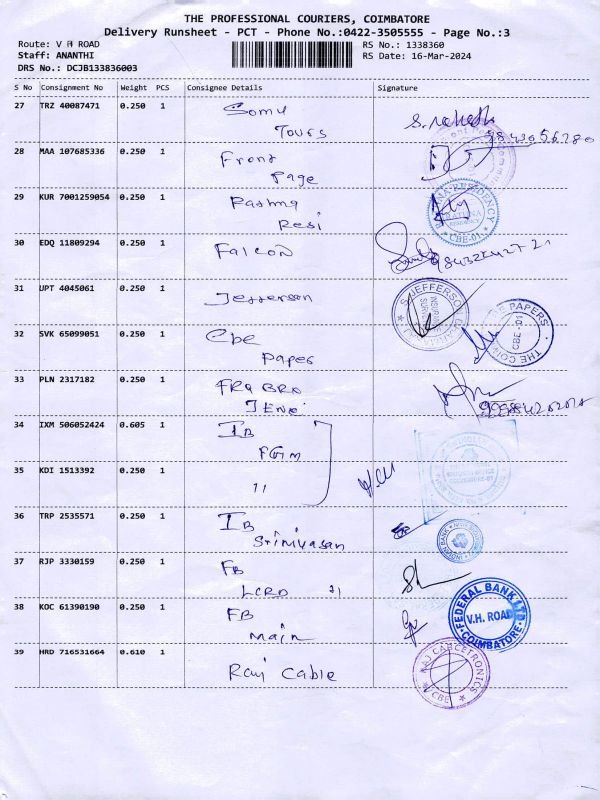 THE PROFESSIONAL COURIERS, COIMBATORE
Delivery Runsheet - PCT - Phone No.:0422-3505555 - Page No.:3
Route: V H ROAD
Staff: ANANTHI
DRS No.: DCJB133836003
RS No.: 1338360
RS Date: 16-Mar-2024
S No Consignment No Weight PCS Consignee Details Signature
27 TRZ 40087471 0.250 1 Somu
Tours
28 MAA 107685336 0.250 1 Front
Page
29 KUR 7001259054 0.250 1
Resi
RESIDENCY
CBE-01
30 EDQ 11809294 0.250 1 Falcon
31 UPT 4045061 0.250 1 Jefferson
32 SVK 65099051 0.250 1 Cbe
Paper
CBE-01
33 PLN 2317182 0.250 1
34 IXM 506052424 0.605 1 IB
35 KDI 1513392 0.250 1 11
36 TRP 2535571 0.250 1 IB
Srinivasan
37 RJP 3330159 0.250 1 FB
LCRD
38 KOC 61390190 0.250 1 FB
Main
FEDERAL BANK LTD
V.H. ROAD
COIMBATORE
39 HRD 716531664 0.610 1 Raj Cable
CBE